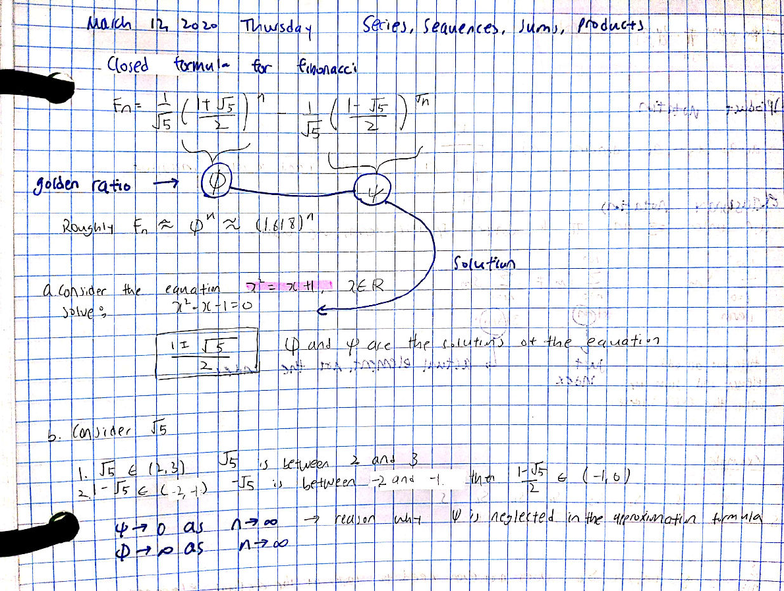 March 12, 2020 Thursday Series, Sequences, Sums, products
Closed formula for fibonacci
Fn = 1/√5 ((1+√5)/2)^n - 1/√5 ((1-√5)/2)^n
golden ratio → φ ψ
Roughly Fn ≈ φ^n ≈ (1.618)^n
Solution
a. Consider the equation x² = x+1, x∈R
solve: x²-x-1=0
(1±√5)/2 φ and ψ are the solutions of the equation
b. Consider √5
1. √5 ∈ (2,3) √5 is between 2 and 3
2. 1-√5 ∈ (-2,-1) -√5 is between -2 and -1. then (1-√5)/2 ∈ (-1,0)
ψ→0 as n→∞ → reason why ψ is neglected in the approximation formula
φ→∞ as n→∞